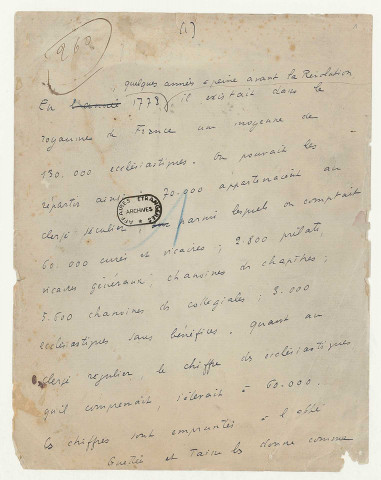 (1)
262
quelques années à peine avant la Révolution
En l'année 1778, il existait dans le
royaume de France une moyenne de
130.000 ecclésiastiques. On pouvait les
répartir ainsi : 70.000 appartenaient au
AFFAIRES ETRANGERES
ARCHIVES
clergé séculier parmi lesquels on comptait
60.000 curés et vicaires ; 2.800 prélats
vicaires généraux, chanoines de chapitres ;
5.600 chanoines de collégiales ; 3.000
ecclésiastiques sans bénéfices. quant au
clergé régulier, le chiffre des ecclésiastiques
qu'il comprenait, s'élevait à 60.000.
Ces chiffres sont empruntés à l'abbé
Guettée et Taine les donne comme